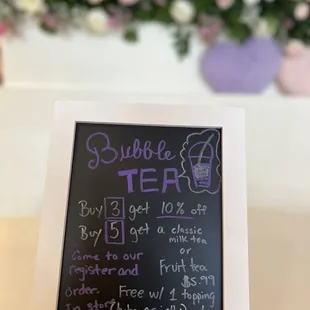 Bubble
TEA
Buy 3 get 10% off
Buy 5 get a classic
milk tea
or
Come to our
register and
order.
Fruit tea
$5.99
Free w/ 1 topping
In store